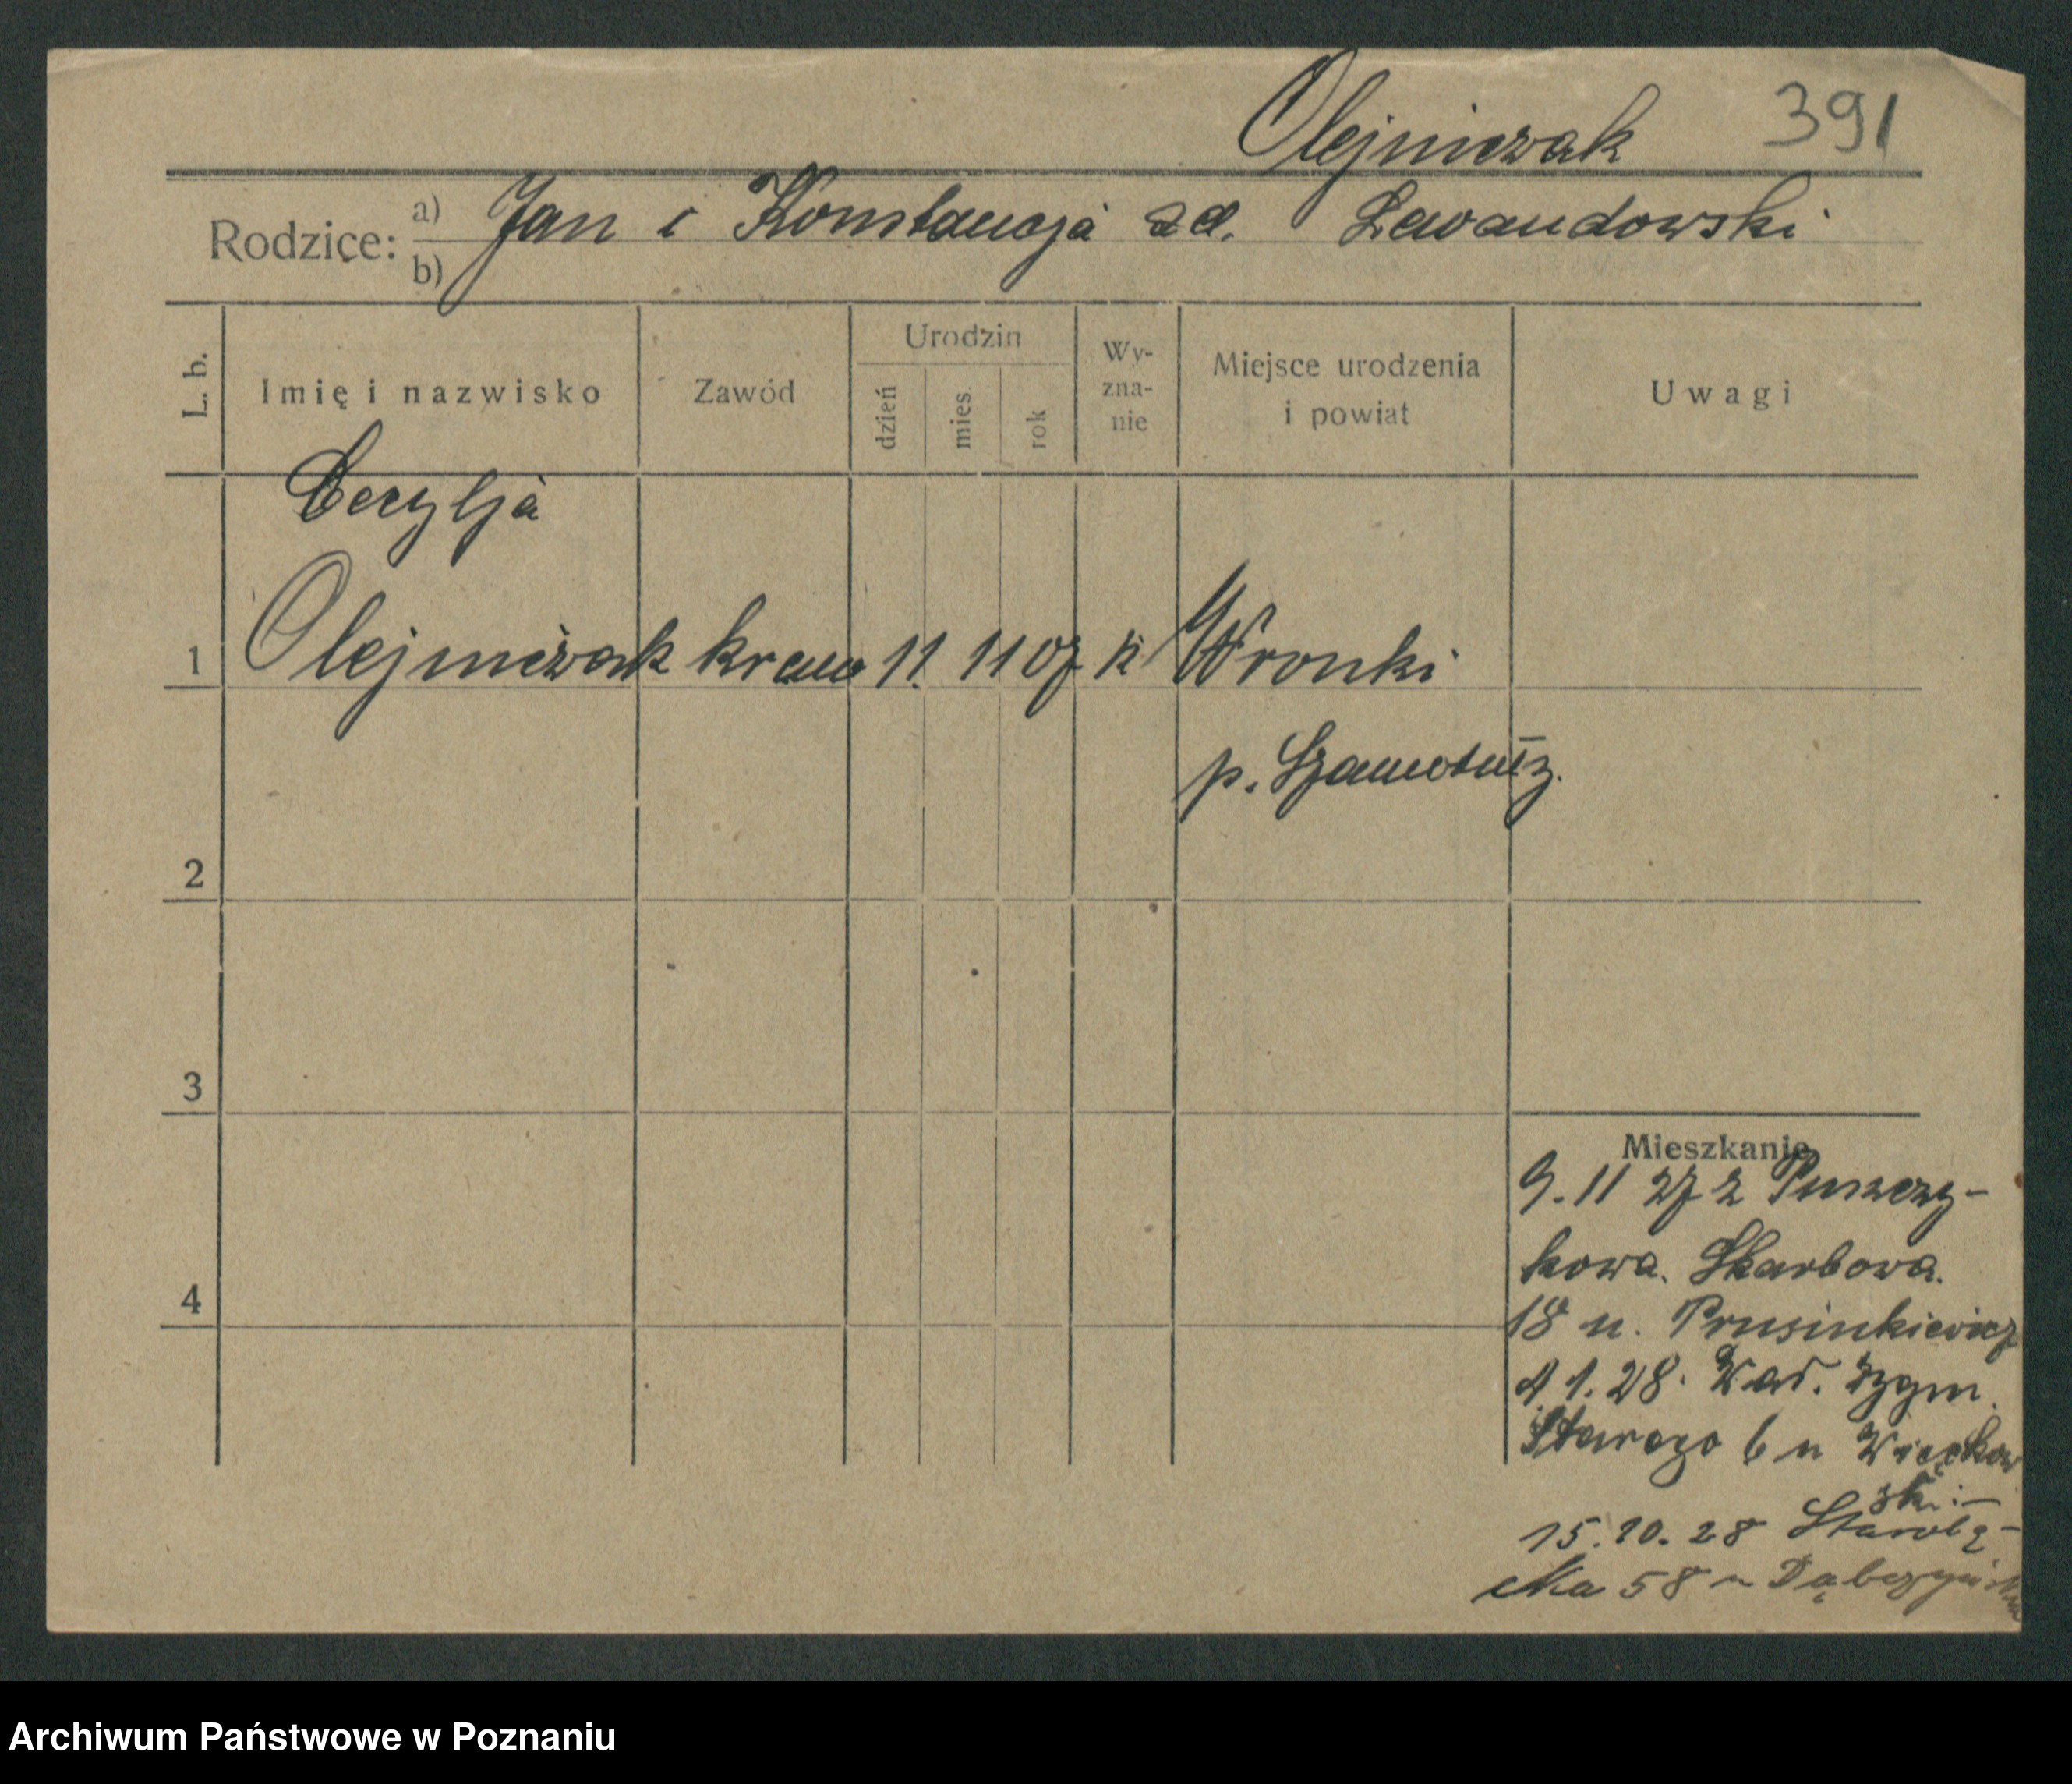 Olejniczak 391
Rodzice: a) Jan i Konstancja zd. Lewandowski
b)
L. b. Imię i nazwisko Zawód Urodzin dzień mies. rok Wy-zna-nie Miejsce urodzenia i powiat Uwagi
Cecylja
1 Olejniczak kraw 11. 11 07 k Wronki
p. Szamotuły.
2
3
4
Mieszkanie
9. 11 27 z Puszczy-
kowa. Skarbowa.
18 u. Prusinkiewicz
4 1. 28. Wał. Zygm.
Starego 6 u Więckow
ski. –
15. 10. 28 Starołę-
cka 58 u
Archiwum Państwowe w Poznaniu